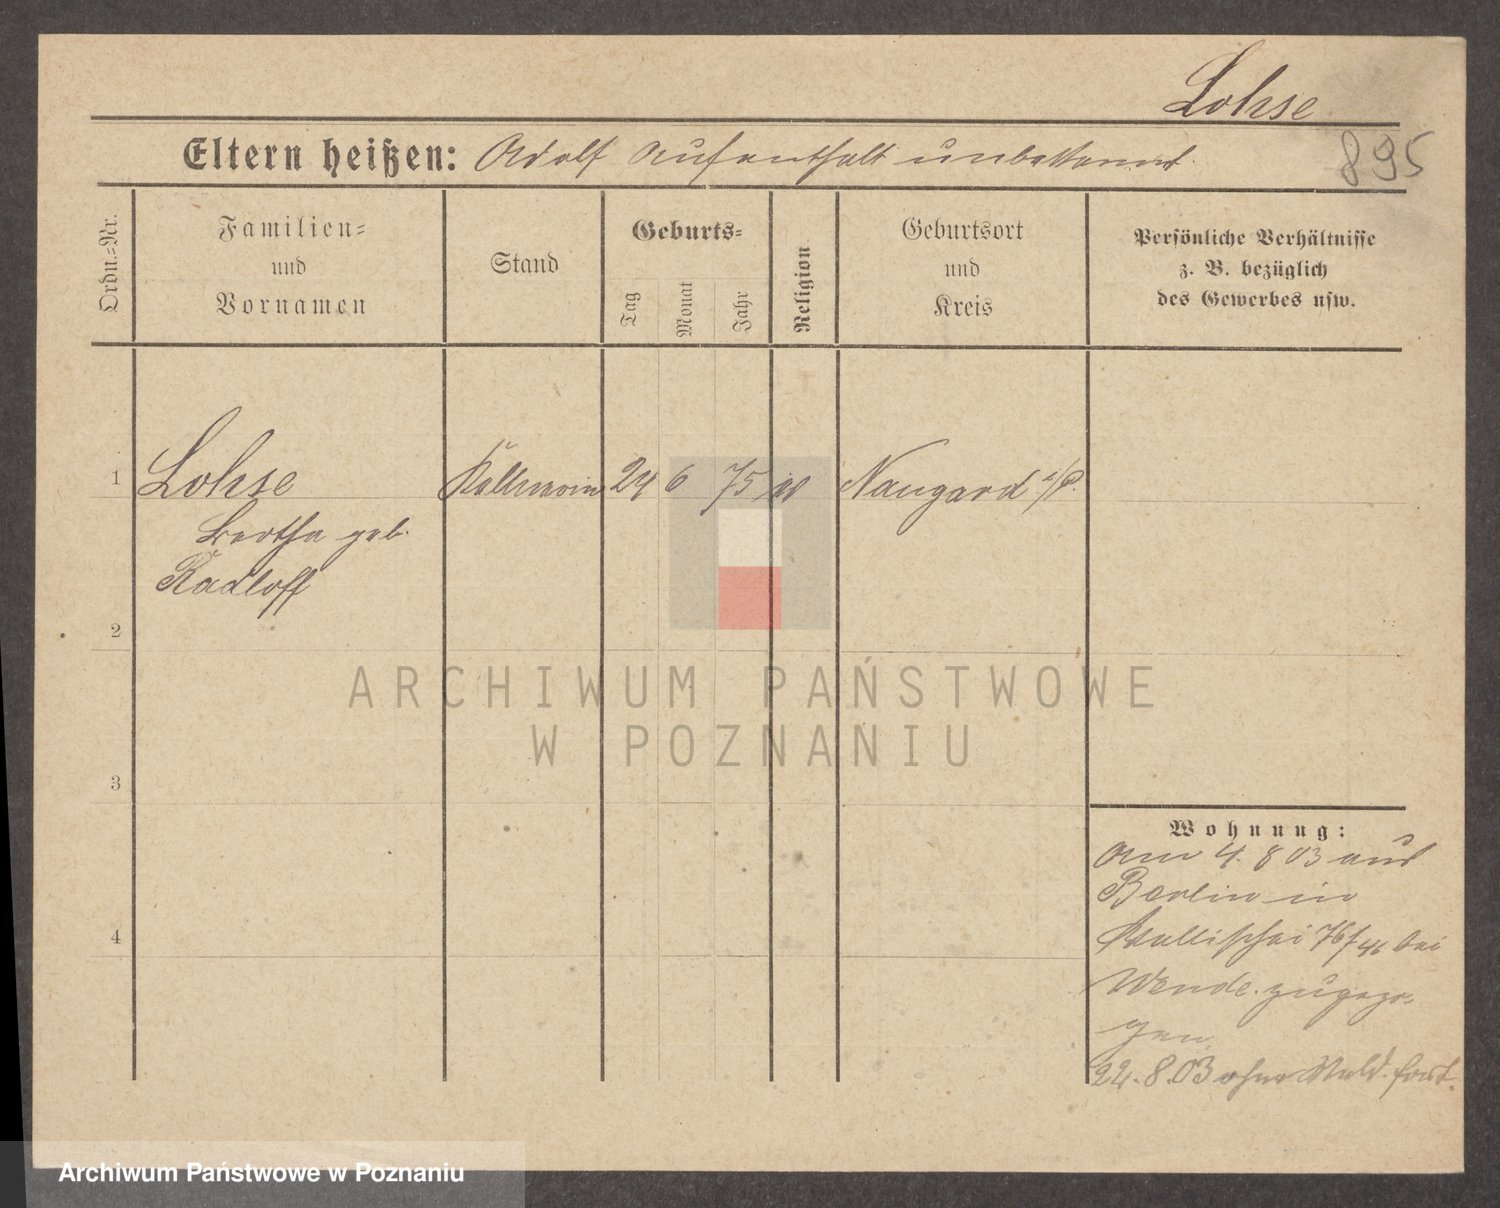 Lohse
895
Eltern heißen: Adolf Aufenthalt unbekannt.
Ordn.=Nr.
Familien=
und
Vornamen
Stand
Geburts=
Tag
Monat
Jahr
Religion
Geburtsort
und
Kreis
Persönliche Verhältnisse
z. B. bezüglich
des Gewerbes usw.
1
Lohse
Kellnerin
24
6
75
Naugard i/P.
Bertha geb.
Radloff
2
ARCHIWUM PAŃSTWOWE
W POZNANIU
3
4
Wohnung:
am 4. 8 03 aus
Berlin in
Wallischei 76/46 bei
Wende zugezo-
gen.
22.8.03 ohne Meld. fort.
Archiwum Państwowe w Poznaniu